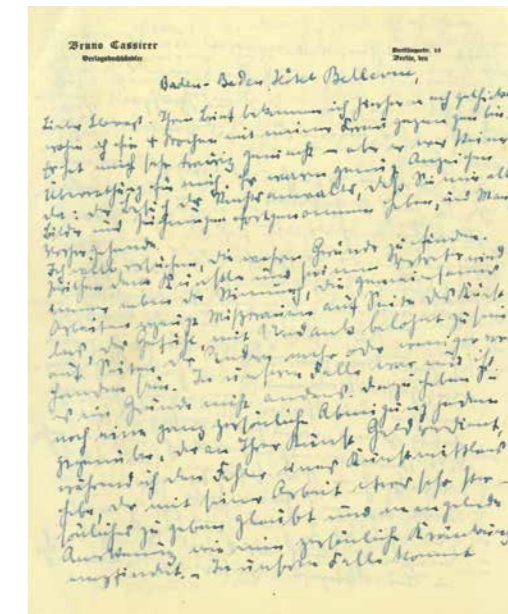 Bruno Cassirer
Verlagsbuchhändler
Derfflingerstr. 16
Berlin, den
Baden-Baden Hôtel Bellevue,
Lieber Ihren Brief bekomme ich hierher nachgeschickt
wohin ich für 4 Wochen mit meiner Frau gegangen bin
Er hat mich sehr traurig gemacht – aber er war keine
Überraschung für mich. Es waren genug Anzeichen
da: der Besuch des Rechtsanwalts, daß Sie mir alle
Bilder und Zeichnungen fortgenommen haben, und
Ich will versuchen, die wahren Gründe zu finden.
Zwischen dem Künstler und seinem wird
immer neben der Stimmung, die gemeinsames
Arbeiten erzeugt Mißtrauen auf Seite des Künst
lers, das Gefühl, mit Undank belohnt zu sein
auf Seiten des Andern mehr oder weniger vor
handen sein. In unserem Falle war und ist
es im Grunde nicht anders. Dazu haben Sie
noch eine ganz persönliche Abneigung jedem
gegenüber, der an Ihrer Kunst Geld verdient,
während ich den Fehler eines Kunstmittlers
habe, der mit seiner Arbeit etwas sehr Per-
sönliches zu geben glaubt und mangelnde
wie eine persönliche Kränkung
empfindet. – In unserem Falle kommt